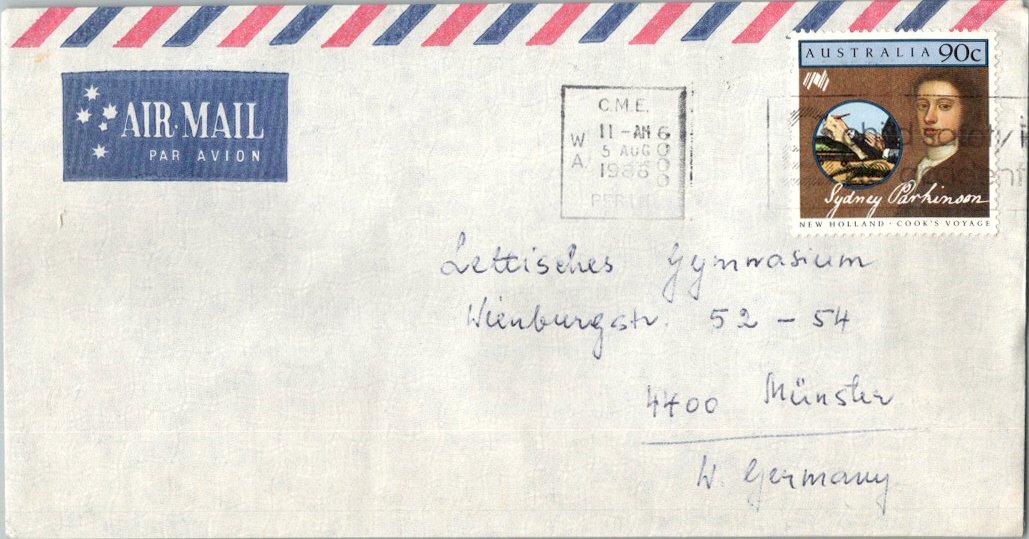 AIR·MAIL
PAR AVION
C.M.E.
11-AM 6
W 5 AUG 0
A 1986 0
0
PERTH
AUSTRALIA 90c
child safety
Sydney Parkinson
NEW HOLLAND · COOK'S VOYAGE
Lettisches Gymnasium
Wienburgstr. 52 - 54
4400 Münster
W. Germany